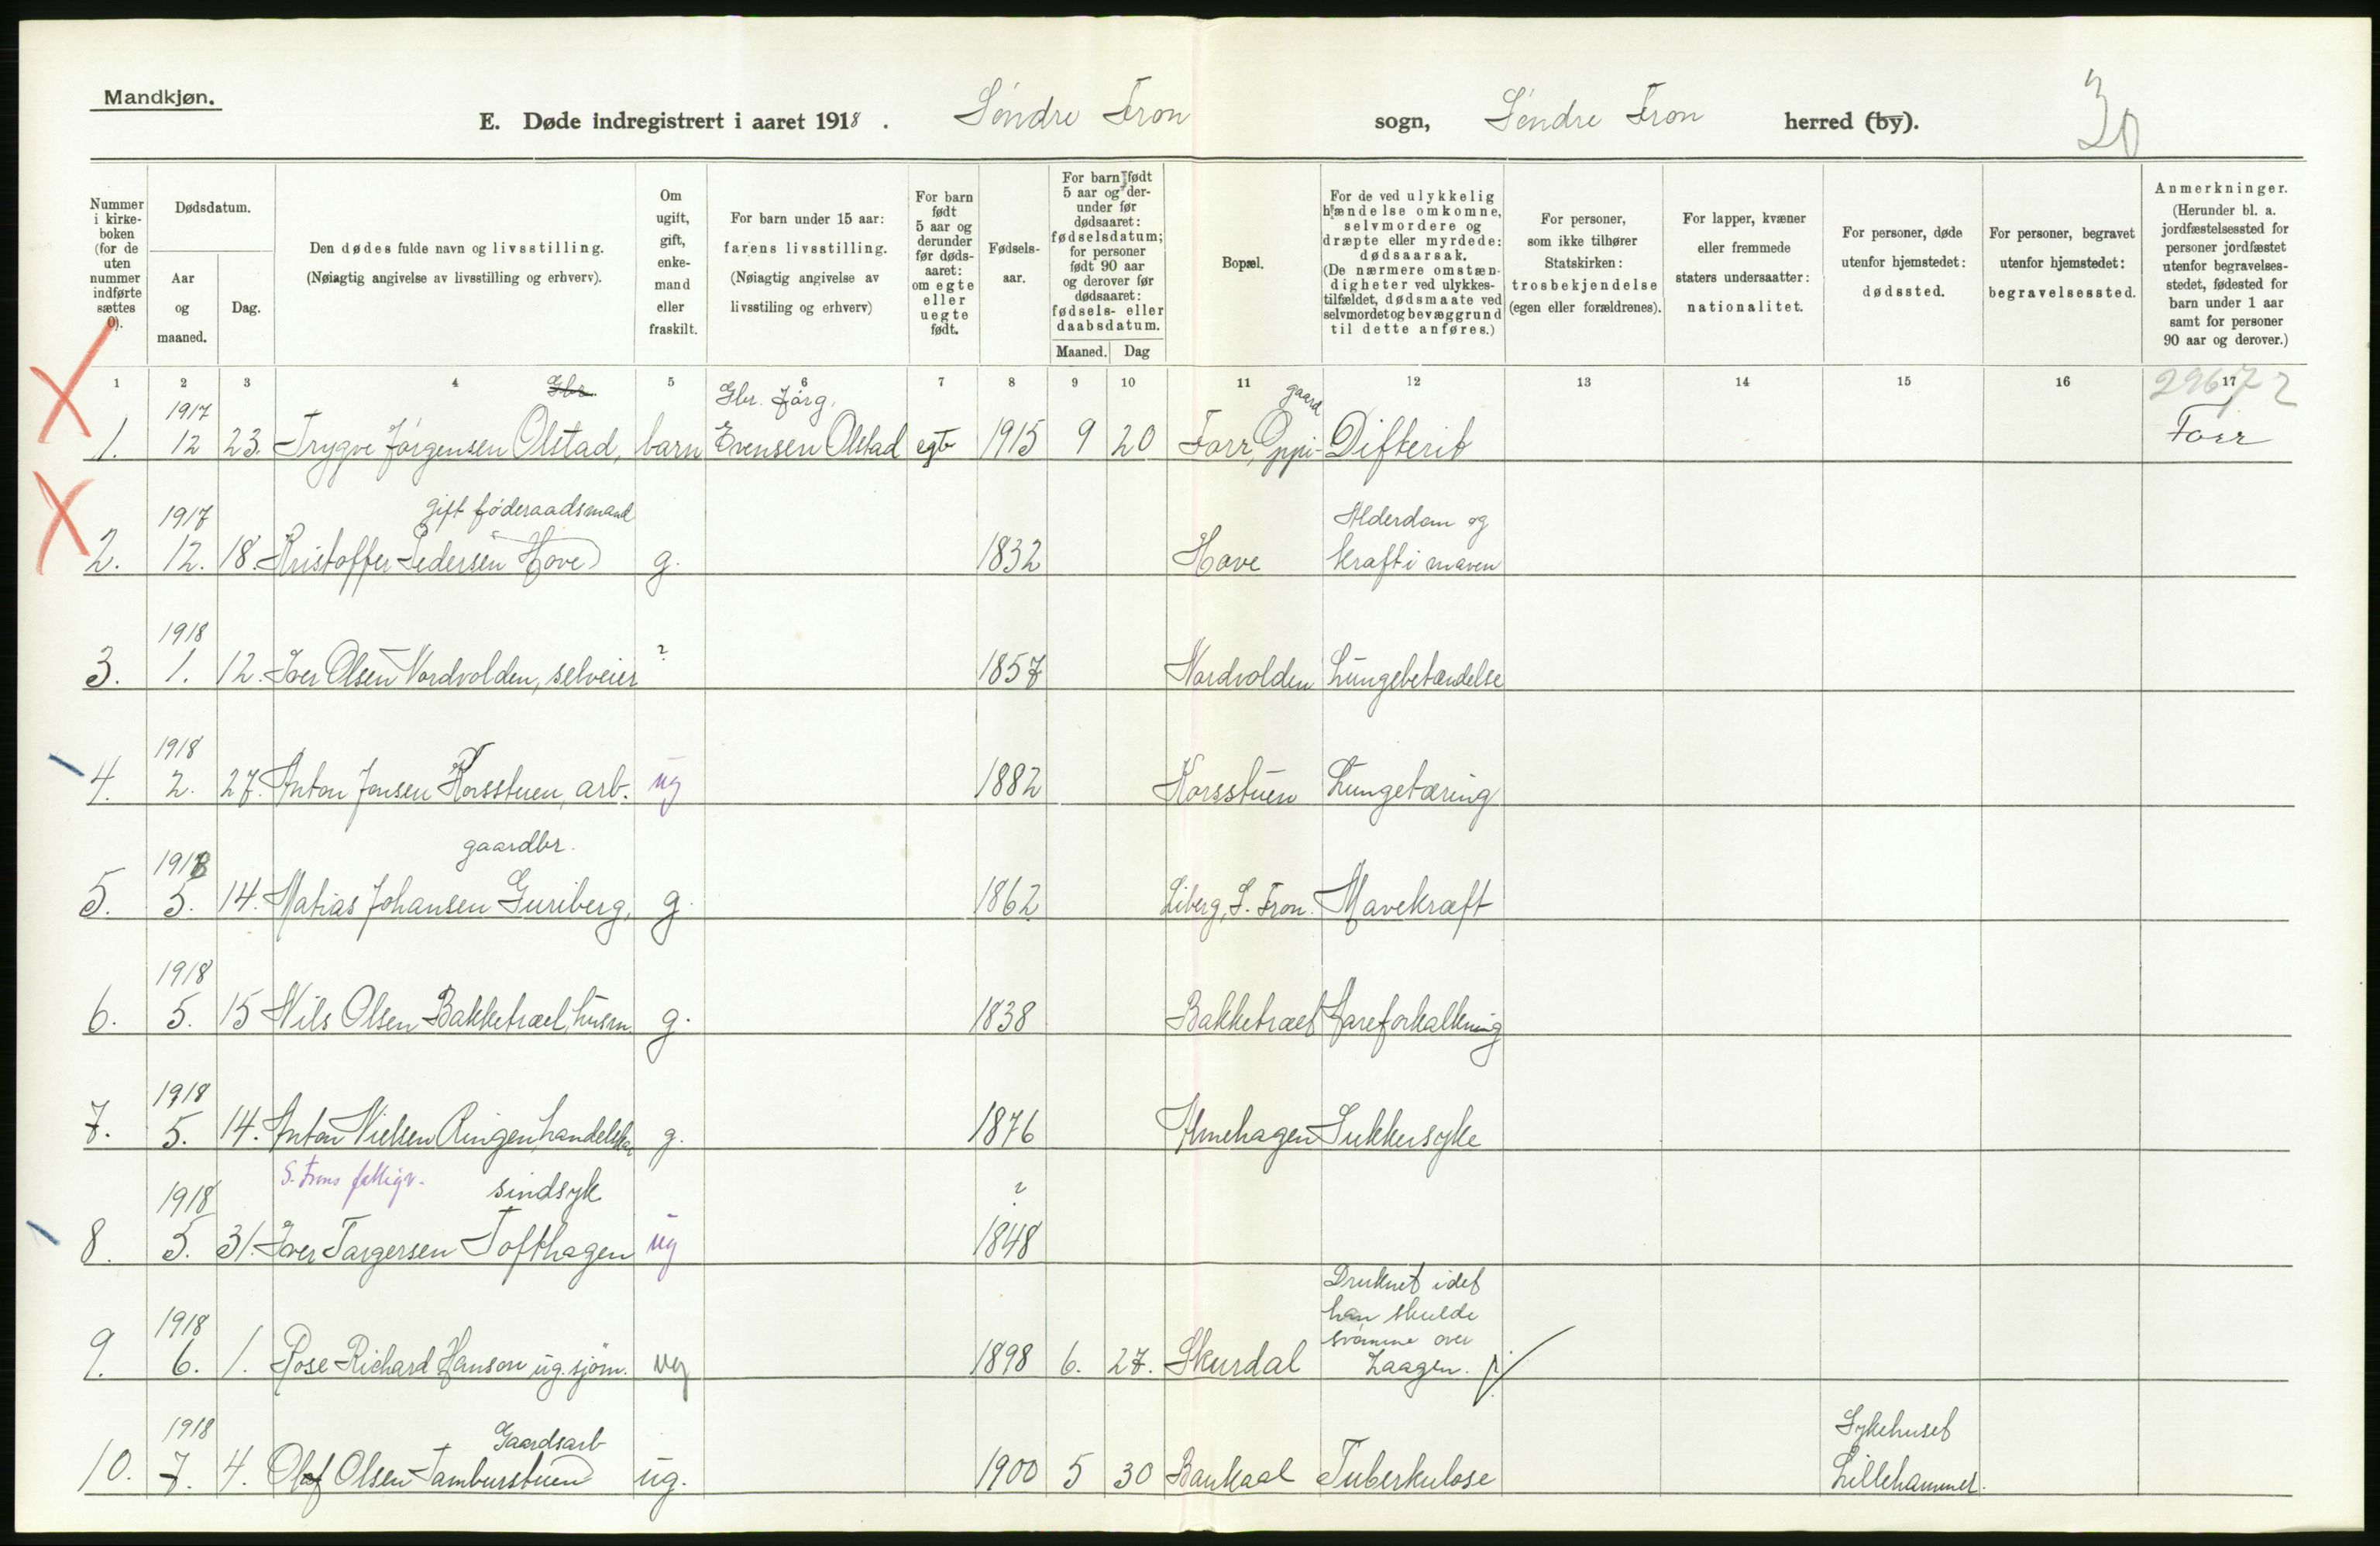 Mandkjøn.
E. Døde indregistrert i aaret 1918. Søndre Fron sogn, Søndre Fron herred (by).
30
Nummer i kirke-boken (for de uten nummer indførte sættes 0).
Dødsdatum.
Aar og maaned.
Dag.
Den dødes fulde navn og livsstilling.
(Nøiagtig angivelse av livsstilling og erhverv).
Om ugift, gift, enke-mand eller fraskilt.
For barn under 15 aar: farens livsstilling. (Nøiagtig angivelse av livsstiling og erhverv)
For barn født 5 aar og derunder før døds-aaret: om egte eller uegte født.
Fødsels-aar.
For barn født 5 aar og der-under før dødsaaret: fødselsdatum; for personer født 90 aar og derover før dødsaaret: fødsels- eller daabsdatum.
Maaned. Dag
Bopæl.
For de ved ulykkelig hændelse omkomne, selvmordere og dræpte eller myrdede: dødsaarsak. (De nærmere omstæn-digheter ved ulykkes-tilfældet, dødsmaate ved selvmordet og bevæggrund til dette anføres.)
For personer, som ikke tilhører Statskirken: trosbekjendelse (egen eller forældrenes).
For lapper, kvæner eller fremmede staters undersaatter: nationalitet.
For personer, døde utenfor hjemstedet: dødssted.
For personer, begravet utenfor hjemstedet: begravelsessted.
Anmerkninger. (Herunder bl. a. jordfæstelsessted for personer jordfæstet utenfor begravelses-stedet, fødested for barn under 1 aar samt for personer 90 aar og derover.)
1 2 3 4 5 6 7 8 9 10 11 12 13 14 15 16 17
Gbr. Gbr. Jørg. gaard 29672
1917
1. 12 23. Trygve Jørgensen Olstad, barn Evensen Olstad egte 1915 9 20 Forr, Oppi- Difterit Forr
1917 gift føderaadsmand Alderdom og
2. 12. 18. Kristoffer Pedersen Hove g. 1832 Hove kræft i maven
1918
3. 1. 12. Iver Olsen Nordvolden, selveier ? 1857 Nordvolden Lungebetændelse
1918
4. 2. 27. Anton Jonsen Korsstuen, arb. ug 1882 Korsstuen Lungetæring
1918 gaardbr.
5. 5. 14. Matias Johansen Guriberg, g. 1862 Liberg, S. Fron. Mavekræft
1918
6. 5. 15 Nils Olsen Bakketræet, husm. g. 1838 Bakketræet Aareforkalkning
1918
7. 5. 14. Anton Nielsen Ringen, handelskar g. 1876 Almehagen Sukkersyke
S. Frons fattigv. sindsyk ?
1918
8. 5. 31. Iver Torgersen Tofthagen ug 1848
Druknet idet
han skulde
1918 svømme over
9. 6. 1. Rose Richard Hanson ug. sjøm. ug 1898 6. 27. Skurdal Laagen.
1918 Gaardsarb Sykehuset
10. 7. 4. Olaf Olsen Tamburstuen ug. 1900 5 30 Baukaal Tuberkulose Lillehammer.